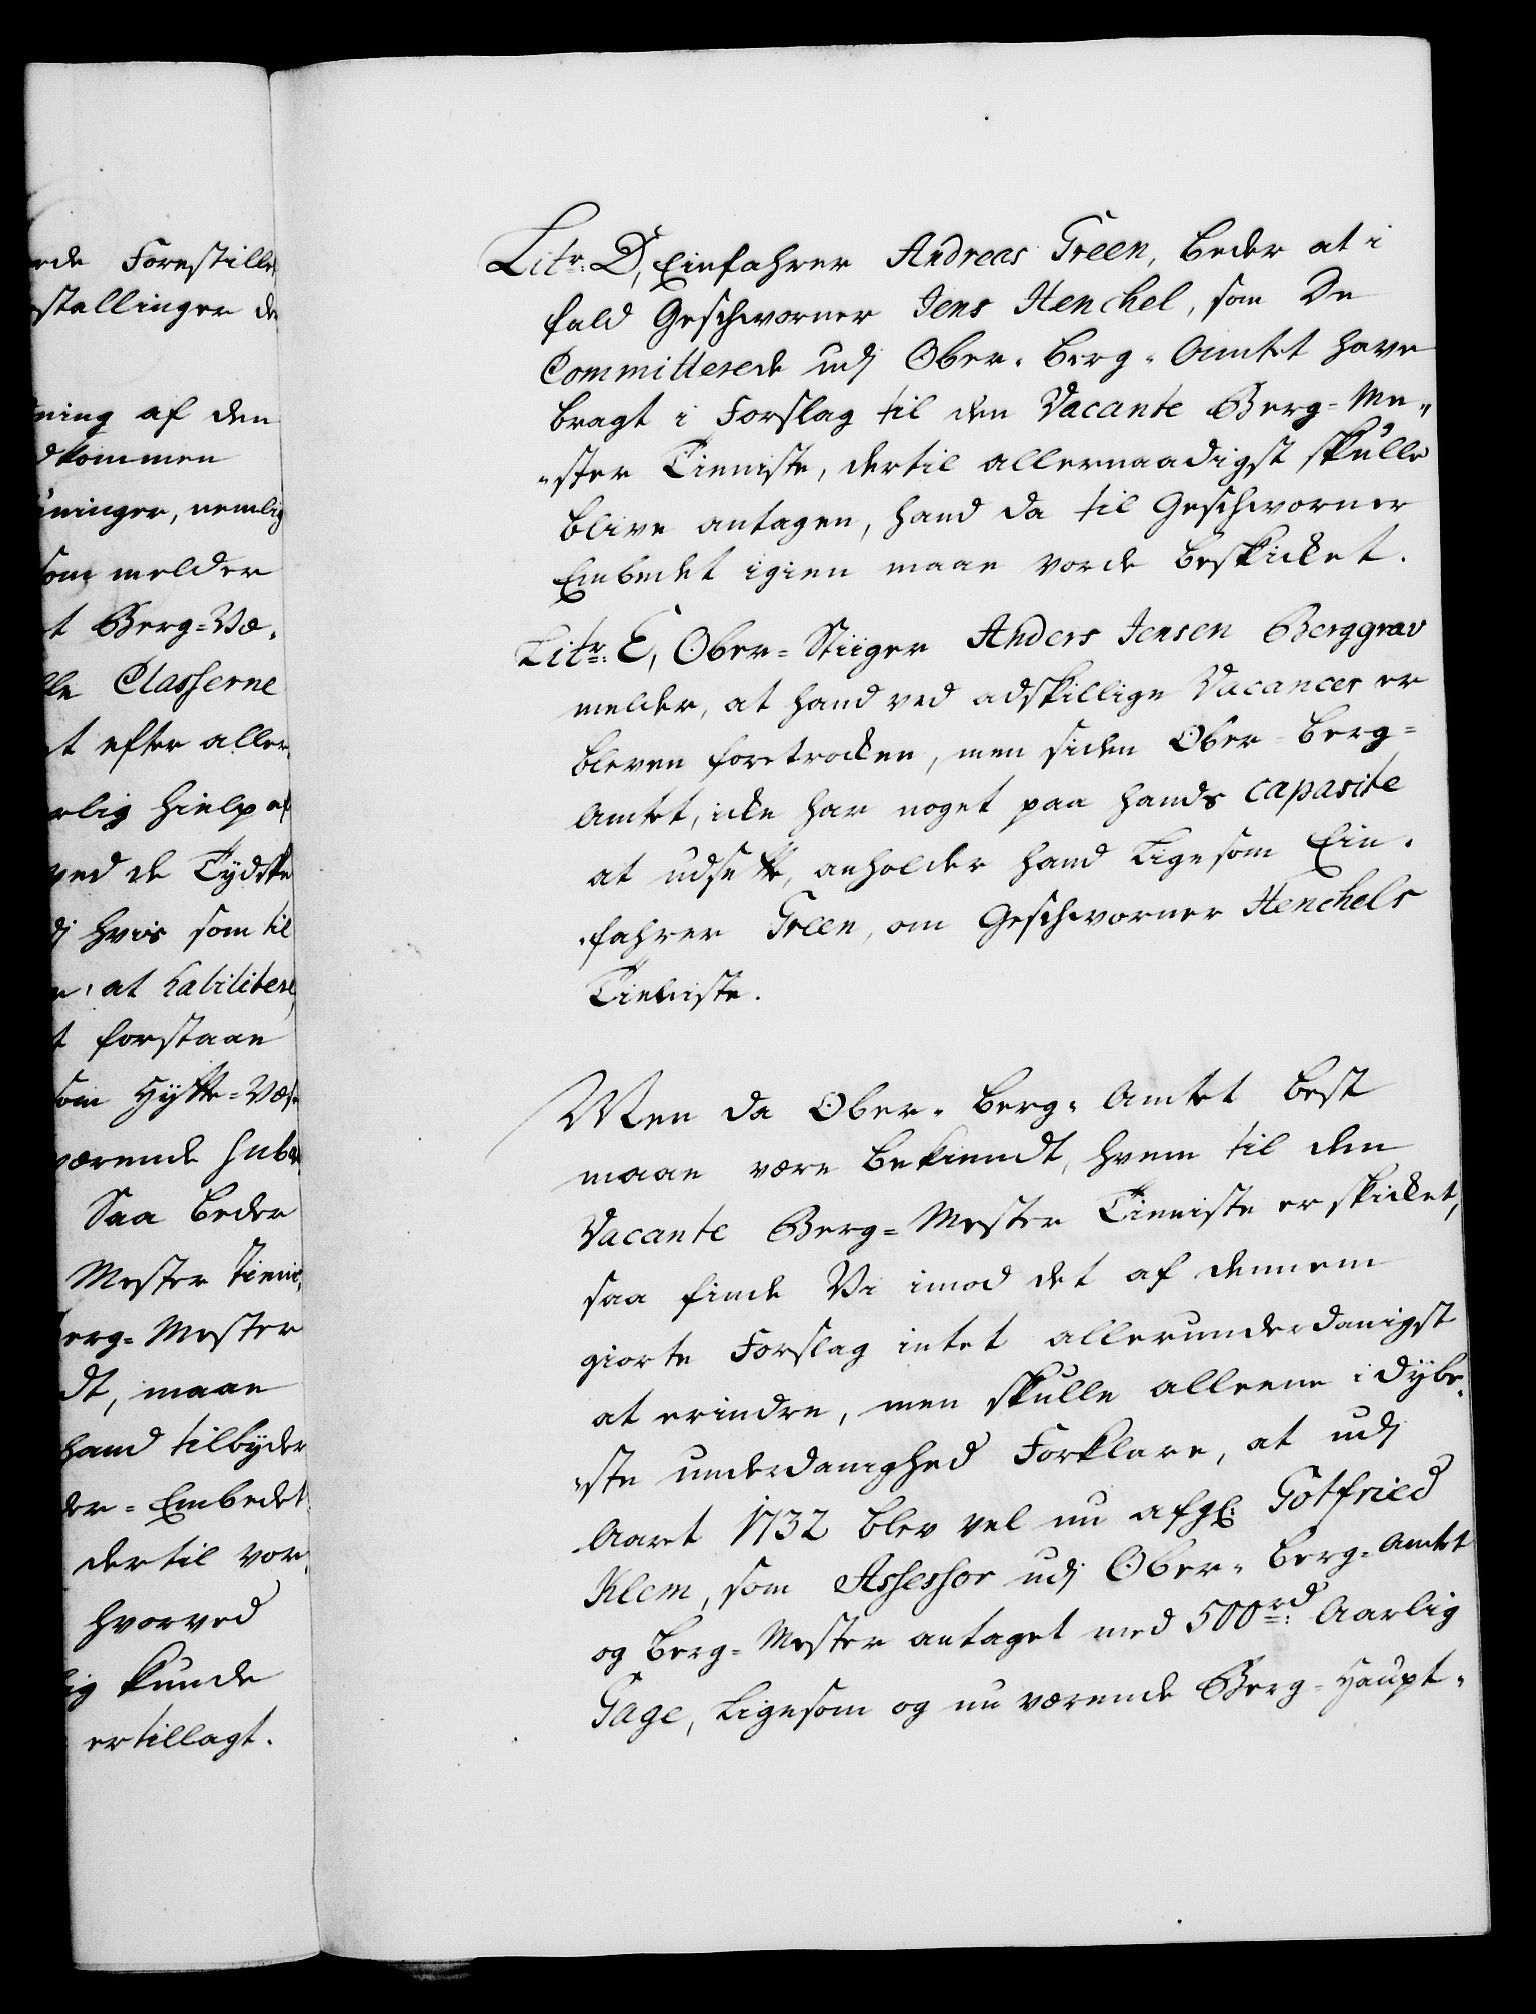 rde Forestille
stallinger de
ning af den
dkommen
ninger, nemlig
som melder
t Berg-Væ-
lle Classerne
t efter aller
rlig hielp af
ved de Tydske
dj hvis som til
at habilitere
t forstaae
som Hytte-Væs
værende
Saa beder
Mester Tienis
erg-Mester
dt, maae
hand tilbyder
der-Embedet
dertil vor
hvorved
ig kunde
er tillagt.
Litr: D, Einfahrer Andreas Green, beder at i
fald Geschworner Jens Henchel, som De
Committerede udj Ober-Berg-Amtet have
bragt i Forslag til den Vacante Berg-Me-
ster Tienniste, dertil allernaadigst skulle
blive antagen, hand da til Geschworner
Embedet igien maae vorde beskicket.
Litr: E, Ober-Stiiger Anders Jensen Berggrav
melder, at hand ved adskillige Vacancer er
bleven foretrocken, men siden Ober-Berg-
Amtet, icke har noget paa hands capasite
at udsette, anholder hand Ligesom Ein-
fahrer Green, om Geschworner Henchels
Tienniste.
Men da Ober-Berg-Amtet best
maae være bekiendt, hvem til den
Vacante Berg-Mester Tienniste er skicket,
saa finde Vi imod det af dennem
giorte Forslag intet allerunderdanigst
at erindre, men skulle alleene i dybe-
ste underdanighed Forklare, at udj
Aaret 1732 blev vel nu afgl: Gotfried
Klem, som Assessor udj Ober-Berg-Amtet
og Berg-Mester antaget med 500 rd: Aarlig
Gage, Ligesom og nu værende Berg-Haupt-